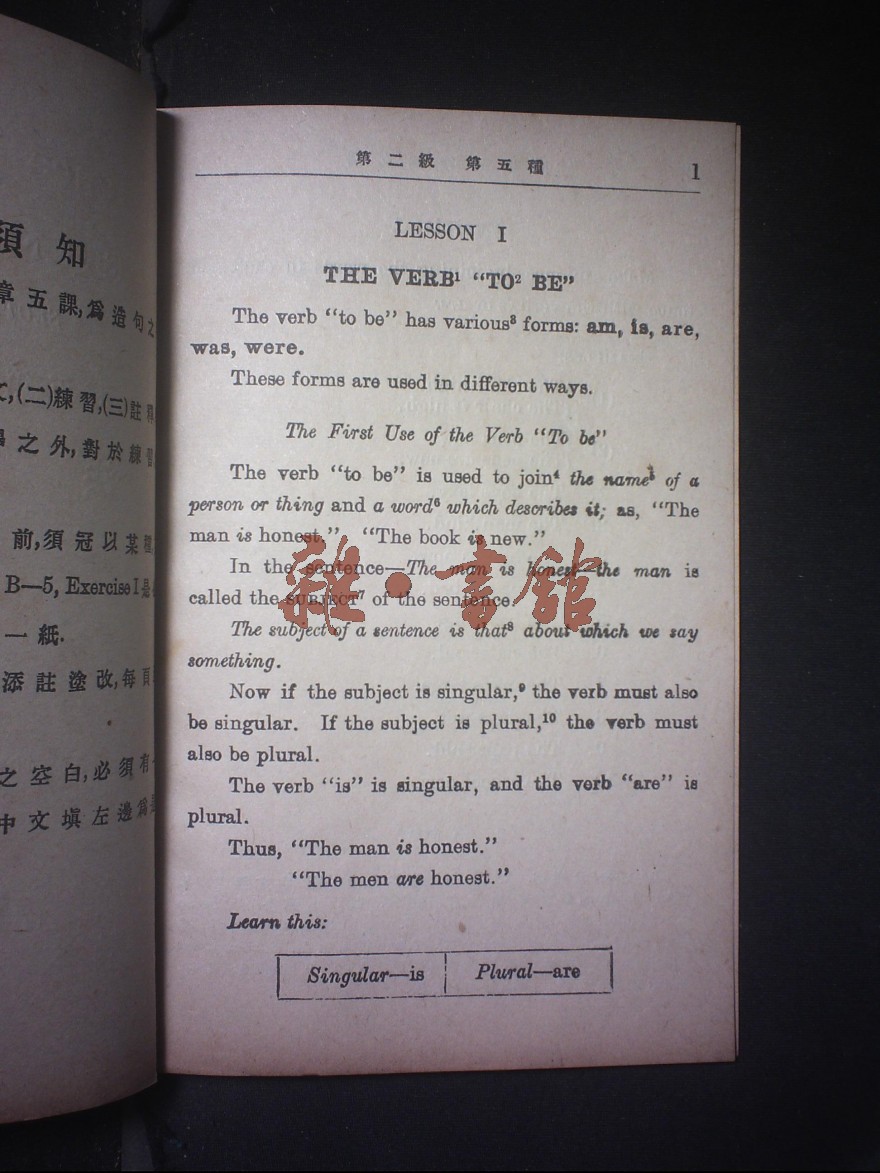 須知
章五課,爲造句之
(二)練習,(三)註釋
之外,對於練習
前,須冠以某種
B—5, Exercise I
一紙.
添註塗改,每頁
之空白,必須有
中文填左邊爲
第二級 第五種 1
LESSON I
THE VERB¹ “TO² BE”
The verb “to be” has various³ forms: am, is, are,
was, were.
These forms are used in different ways.
The First Use of the Verb “To be”
The verb “to be” is used to join⁴ the name⁵ of a
person or thing and a word⁶ which describes it; as, “The
man is honest.” “The book is new.”
In the sentence—The man is honest—the man is
called the SUBJECT⁷ of the sentence.
The subject of a sentence is that⁸ about which we say
something.
Now if the subject is singular,⁹ the verb must also
be singular. If the subject is plural,¹⁰ the verb must
also be plural.
The verb “is” is singular, and the verb “are” is
plural.
Thus, “The man is honest.”
“The men are honest.”
Learn this:
Singular—is Plural—are
雜·書館